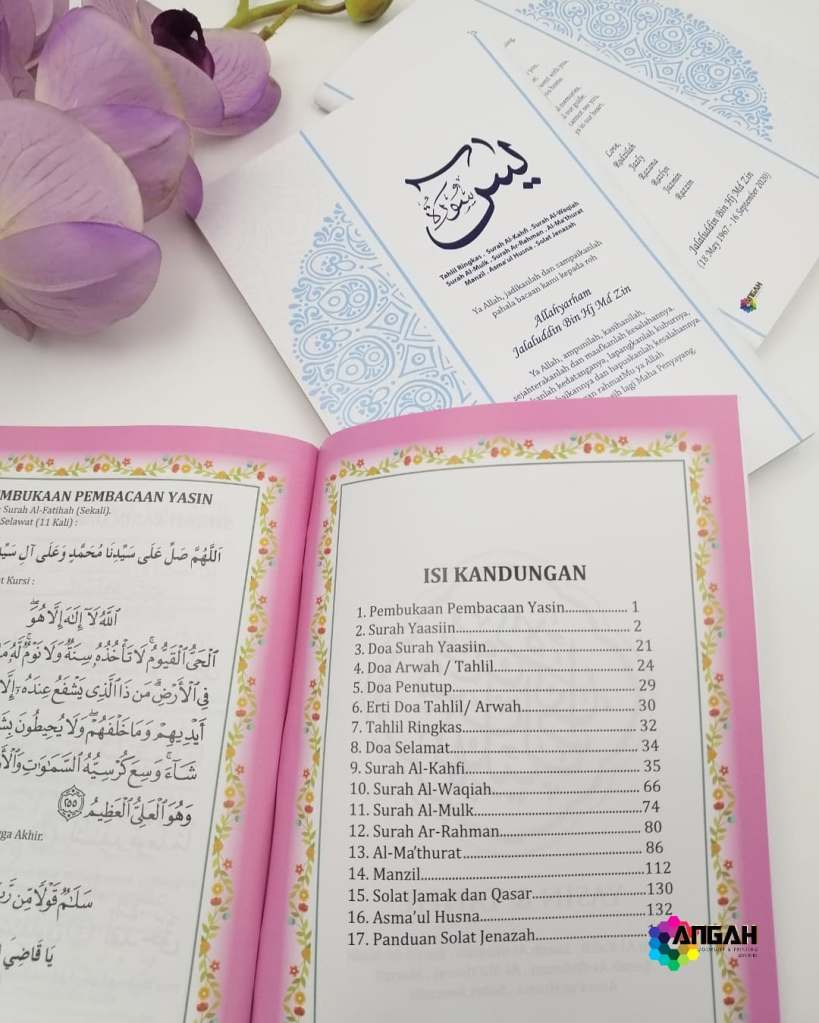 يس
سورة
Tahlil Ringkas . Surah Al-Kahfi . Surah Al-Waqiah
Surah Al-Mulk . Surah Ar-Rahman . Al-Ma'thurat
Manzil . Asma'ul Husna . Solat Jenazah
Ya Allah, jadikanlah dan sampaikanlah
pahala bacaan kami kepada roh
Allahyarham
Jalaluddin Bin Hj Md Zin
Ya Allah, ampunilah, kasihanilah,
sejahterakanlah dan maafkanlah kesalahannya,
kedatangannya, lapangkanlah kuburnya,
dan hapuskanlah kesalahannya
rahmatMu ya Allah
lagi Maha Penyayang
Love,
Jazly
Razana
Razlyn
Jazman
Razzim
Jalaluddin Bin Hj Md Zin
(18 May 1967 - 16 September 2020)
ANGAH
PEMBACAAN YASIN
Surah Al-Fatihah (Sekali).
Selawat (11 Kali) :
اَللَّهُمَّ صَلِّ عَلَى سَيِّدِنَا مُحَمَّدٍ وَعَلَى آلِ
Kursi :
ٱللَّهُ لَآ إِلَٰهَ إِلَّا هُوَ
ٱلْحَىُّ ٱلْقَيُّومُ ۚ لَا تَأْخُذُهُۥ سِنَةٌ وَلَا نَوْمٌ ۚ لَّهُۥ
فِى ٱلْأَرْضِ ۗ مَن ذَا ٱلَّذِى يَشْفَعُ عِندَهُۥٓ إِلَّا
أَيْدِيهِمْ وَمَا خَلْفَهُمْ ۖ وَلَا يُحِيطُونَ
شَآءَ ۚ وَسِعَ كُرْسِيُّهُ ٱلسَّمَٰوَٰتِ
وَهُوَ ٱلْعَلِىُّ ٱلْعَظِيمُ ٢٥٥
Akhir.
سَلَٰمٌ قَوْلًا مِّن
يَا قَاضِيَ
ISI KANDUNGAN
1. Pembukaan Pembacaan Yasin.................... 1
2. Surah Yaasiin............................................ 2
3. Doa Surah Yaasiin.................................... 21
4. Doa Arwah / Tahlil................................... 24
5. Doa Penutup............................................. 29
6. Erti Doa Tahlil/ Arwah............................ 30
7. Tahlil Ringkas........................................... 32
8. Doa Selamat.............................................. 34
9. Surah Al-Kahfi.......................................... 35
10. Surah Al-Waqiah.................................... 66
11. Surah Al-Mulk.........................................74
12. Surah Ar-Rahman................................... 80
13. Al-Ma'thurat............................................ 86
14. Manzil......................................................112
15. Solat Jamak dan Qasar............................130
16. Asma'ul Husna.........................................132
17. Panduan Solat Jenazah............................
ANGAH